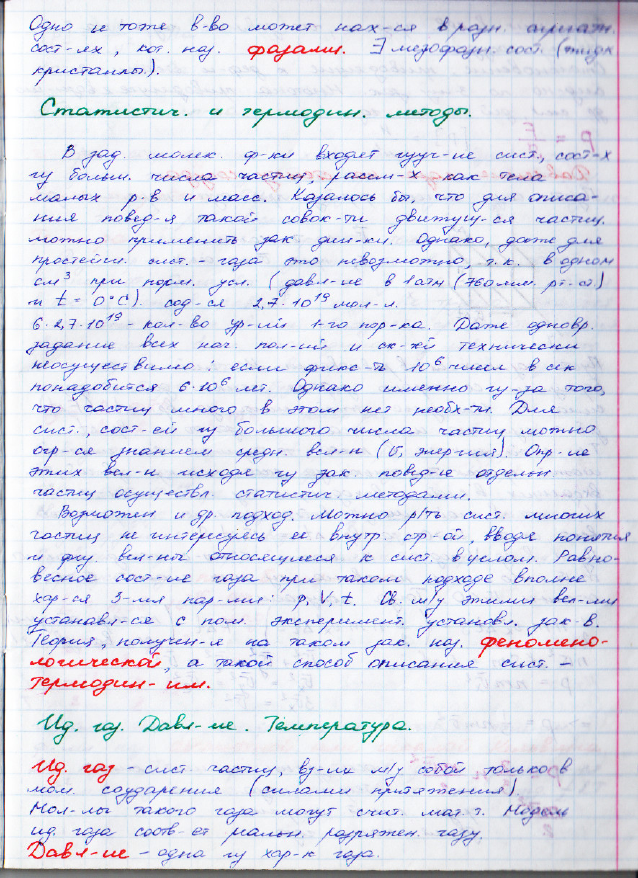 Одно и тоже в-во может нах-ся в разн. агрегатн.
сост-ях, кот. наз. фазами. ∃ мезофазн. сост. (жидк
кристаллы.).
Статистич. и термодин. методы.
В зад. молек. ф-ки входят изуч-ие сист., сост-х
из больш. числа частиц, рассм-х как тела
малых р-в и масс. Казалось бы, что для описа-
ния повед-я такой совок-ти движущ-ся частиц
можно применить зак дин-ки. Однако, даже для
простейш. сист. - газа это невозможно, т.к. в одном
см³ при норм. усл. (давл-ие в 1 атм (760 мм. рт. ст)
и t = 0°C). сод-ся 2,7·10¹⁹ мол-л.
6·2,7·10¹⁹ - кол-во ур-ий 1-го пор-ка. Даже одновр.
задание всех нач. пол-ий и ск-тей технически
неосуществимо: если фикс-ть 10⁶ чисел в сек
понадобится 6·10⁶ лет. Однако именно из-за того,
что частиц много в этом нет необх-ти. Для
сист., сост-ей из большого числа частиц можно
огр-ся знанием средн. вел-н (v, энергия). Опр-ие
этих вел-н исходя из зак. повед-ие отдельн
частиц осуществл. статистич. методами.
Возможен и др. подход. Можно р/ть сист. многих
частиц не интересуясь её внутр. стр-ой, вводя понятия
и физ. вел-ны относящиеся к сист. в целом. Равно-
весное сост-ие газа при таком подходе вполне
хар-ся 3-мя пар-ми: p, V, t. Св. м/у этими вел-ми
устанавл-ся с пом. эксперимент. установл. зак-в.
Теория, получен-я на таком зак. наз. феномено-
логической, а такой способ описания сист. -
термодин-им.
Ид. газ. Давл-ие. Температура.
Ид. газ - сист. частиц, вз-их м/у собой только в
мом. соударения (силами притяжения)
Мол-лы такого газа могут счит. мат. т. Модель
ид. газа соотв-ет реальн. разряжен. газу.
Давл-ие - одна из хар-к газа.